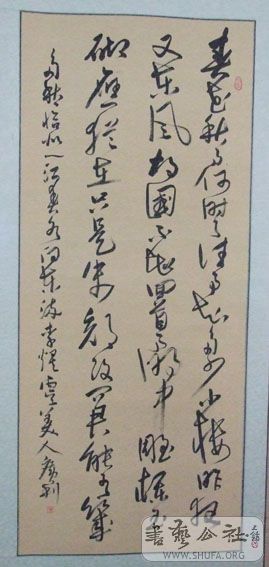 春花秋月何時了往事知多少小樓昨夜
又東風故國不堪回首月明中雕欄玉
砌應猶在只是朱顏改問君能有幾
多愁恰似一江春水向東流李煜虞美人
書藝公社
WWW.SHUFA.ORG